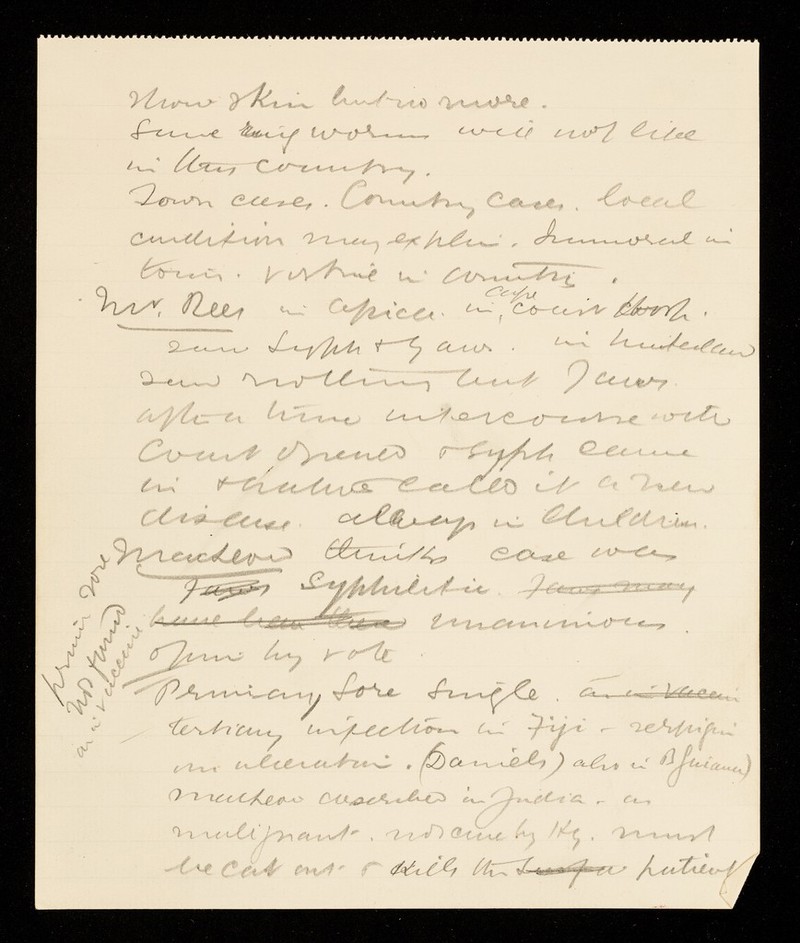 show skin but no more.
Some ring worms will not live
in this country.
Town cases. Country cases. local
condition may explain. Immoral in
town. virtue in country.
Mr. Rees in Africa. in Cape coast
saw Syph & Yaws. in hinterland
saw nothing but Yaws.
after a time intercourse with
Coast opened & syph came
in & natives called it a new
disease. always in Children.
Macleod thinks case was
Yaws Syphilitic. Yaws may
have been then unanimous.
opin by vote
Primary Sore Single. as in vaccin
tertiary infection in Fiji - serpigin
ulceration. (Daniels) also in B Guiana)
Macleod described in India - as
malignant. not cure by Hg. must
be cut out & kills the patient
primary Sore
not found
as in vaccine